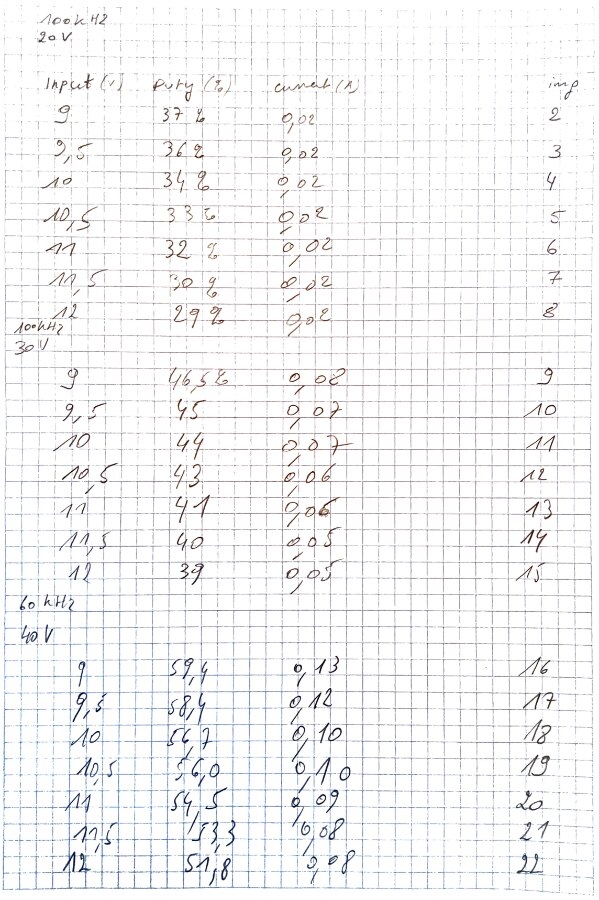 100kHz
20V
Input (V) Duty (%) current (A) img
9 37% 0,02 2
9,5 36% 0,02 3
10 34% 0,02 4
10,5 33% 0,02 5
11 32% 0,02 6
11,5 30% 0,02 7
12 29% 0,02 8
100kHz
30V
9 46,5% 0,08 9
9,5 45 0,07 10
10 44 0,07 11
10,5 43 0,06 12
11 41 0,06 13
11,5 40 0,05 14
12 39 0,05 15
60kHz
40V
9 59,4 0,13 16
9,5 58,4 0,12 17
10 56,7 0,10 18
10,5 56,0 0,10 19
11 54,5 0,09 20
11,5 53,3 0,08 21
12 51,8 0,08 22